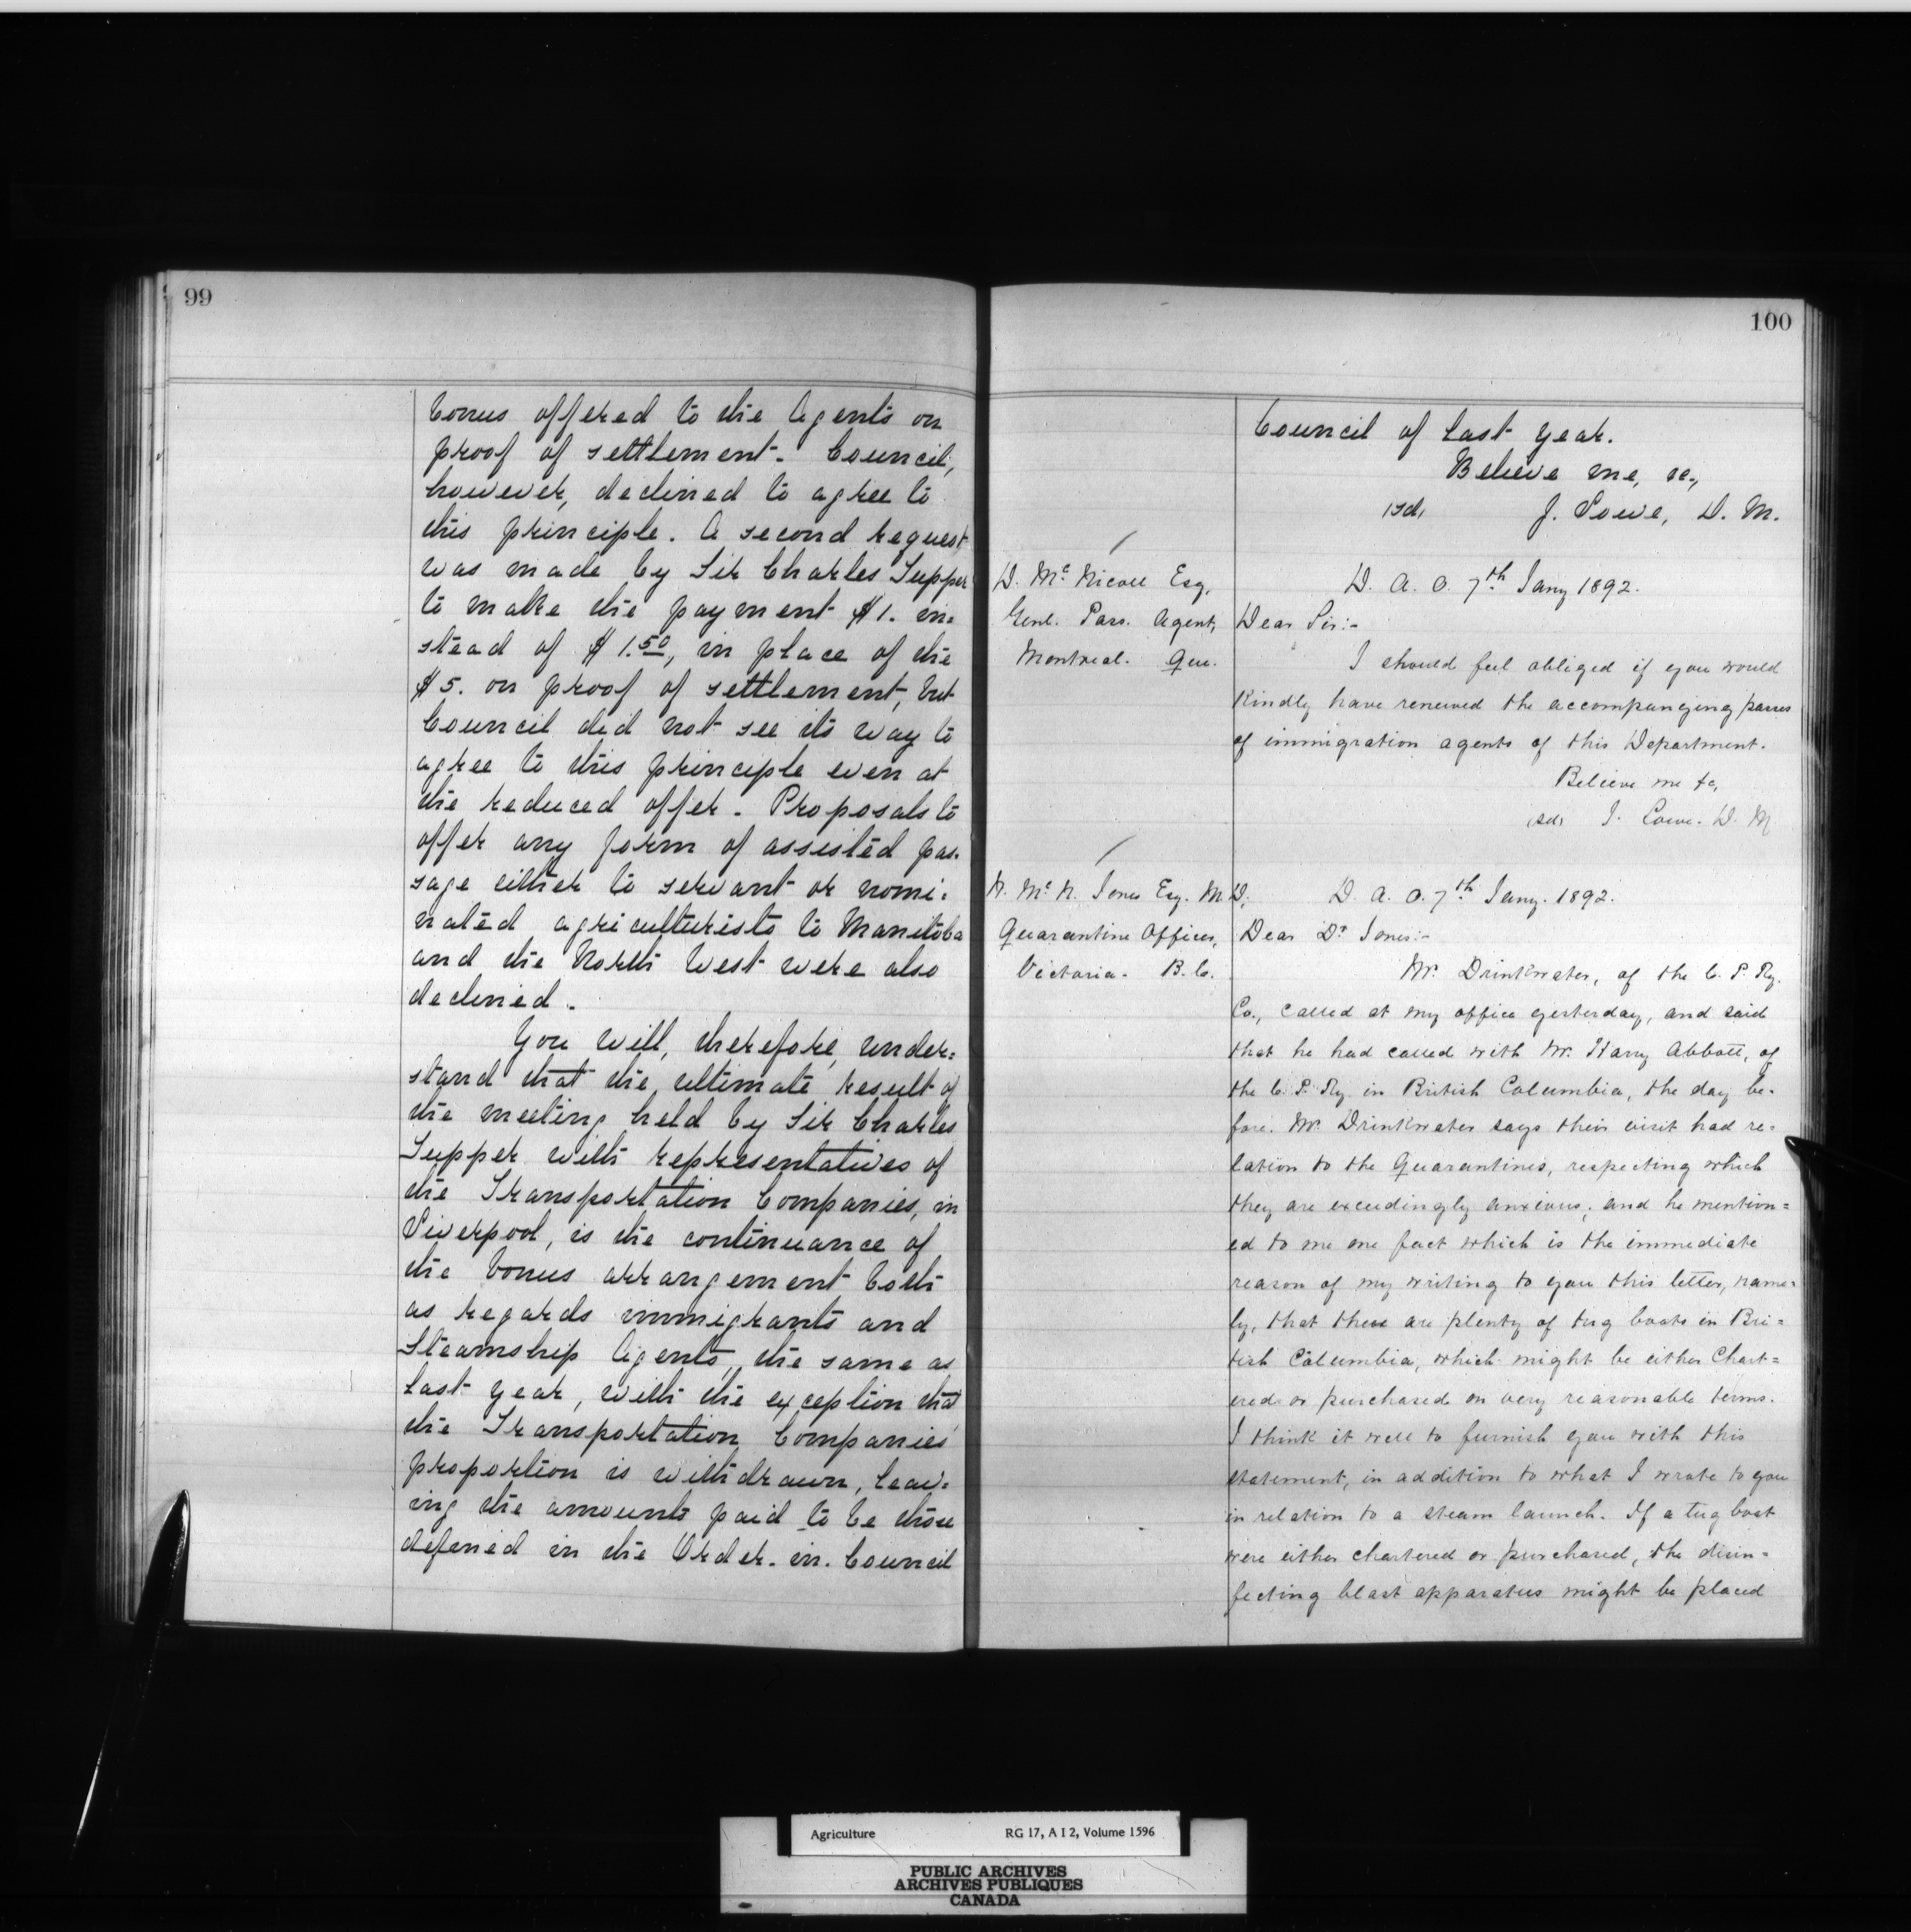 99
bonus offered to the Agents on
proof of settlement. Council,
however, declined to agree to
this principle. A second request
was made by Sir Charles Tupper
to make the payment $1. in=
stead of $1.50, in place of the
$5. on proof of settlement, but
Council did not see its way to
agree to this principle even at
the reduced offer. Proposals to
offer any form of assisted pas-
sage either to servant or nomi=
nated agriculturists to Manitoba
and the North West were also
declined.
You will, therefore, under=
stand that the ultimate result of
the meeting held by Sir Charles
Tupper with representatives of
the Transportation Companies, in
Liverpool, is the continuance of
the bonus arrangement both
as regards immigrants and
Steamship Agents, the same as
last year, with the exception that
the Transportation Companies'
proportion is withdrawn, leav=
ing the amounts paid to be those
defined in the Order-in-Council
100
Council of last year.
Believe me, &c.,
(sd) J. Lowe, D. M.
D. McNicoll Esq,
Genl. Pass. Agent,
Montreal. Que.
D. A. O. 7th Jany 1892.
Dear Sir:-
I should feel obliged if you would
kindly have renewed the accompanying passes
of immigration agents of this Department.
Believe me &c,
(sd) J. Lowe. D. M
W. Mc N. Jones Esq. M.D,
Quarantine Officer,
Victoria. B.C.
D. A. O. 7th Jany. 1892.
Dear Dr Jones:-
Mr. Drinkwater, of the C. P. Ry.
Co., called at my office yesterday, and said
that he had called with Mr. Harry Abbott, of
the C. P. Ry. in British Columbia, the day be-
fore. Mr. Drinkwater says their visit had re-
lation to the Quarantines, respecting which
they are exceedingly anxious; and he mention=
ed to me one fact which is the immediate
reason of my writing to you this letter, name=
ly, that there are plenty of tug boats in Bri=
tish Columbia, which might be either Chart=
ered or purchased on very reasonable terms.
I think it well to furnish you with this
statement, in addition to what I wrote to you
in relation to a steam launch. If a tug boat
were either chartered or purchased, the disin=
fecting blast apparatus might be placed
Agriculture RG 17, A I 2, Volume 1596
PUBLIC ARCHIVES
ARCHIVES PUBLIQUES
CANADA